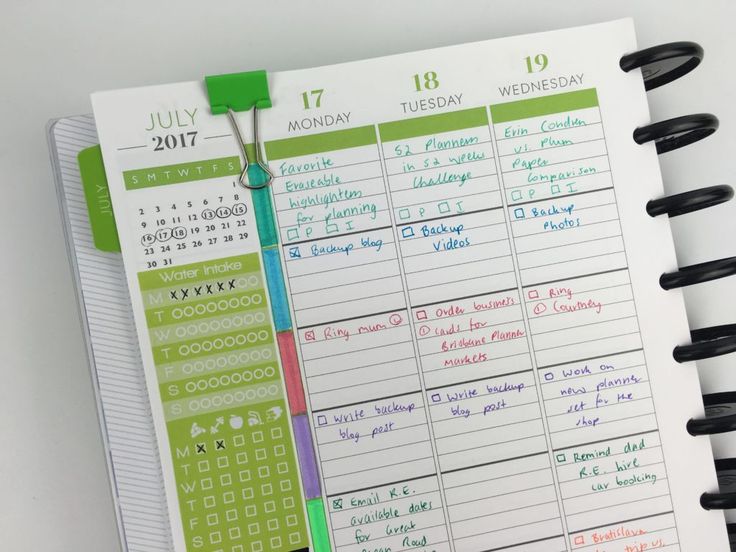 JULY
2017
S M T W T F S
1
2 3 4 5 6 7 8
9 10 11 12 13 14 15
16 17 18 19 20 21 22
23 24 25 26 27 28 29
30 31
Water Intake
M
T
W
T
F
S
S
M
T
W
T
F
S
JULY
17
MONDAY
Favorite
Eraseable
highlighters
for planning
P I
Backup blog
Ring mum
Write backup
blog post
Email R.E.
available dates
for Great
Ocean Road
18
TUESDAY
52 Planners
in 52 weeks
challenge
P I
Backup
Videos
Order business
cards for
Brisbane Planner
Markets
Write backup
blog post
19
WEDNESDAY
Erin Condren
vs Plum
Paper
comparison
P I
Backup
Photos
Ring
Courtney
Work on
new planner
set for the
shop
Remind dad
R.E. hire
car booking
Bratislava
trip vs